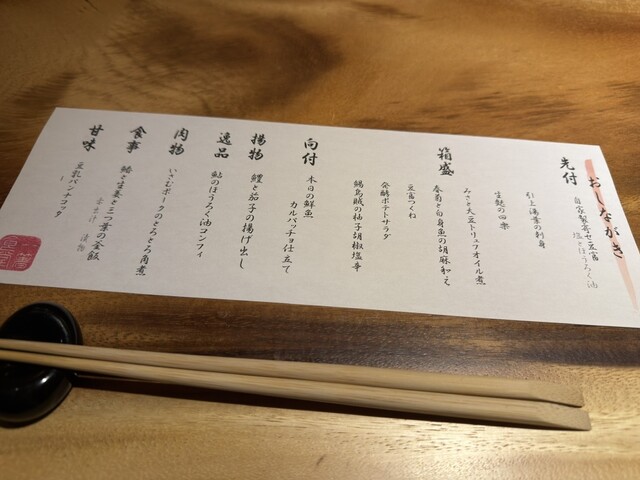 おしながき
先付
自家製寄せ豆富
塩とほうろく油
箱盛
引上湯葉の刺身
生麩の田楽
みさと大豆トリュフオイル煮
春菊と白身魚の胡麻和え
豆富つくね
発酵ポテトサラダ
鯣烏賊の柚子胡椒塩辛
向付
本日の鮮魚
カルパッチョ仕立て
揚物
鱧と茄子の揚げ出し
逸品
鮎のほうろく油コンフィ
肉物
いさむポークのとろとろ角煮
食事
と生姜と三つ葉の釜飯
赤出汁 漬物
甘味
豆乳パンナコッタ